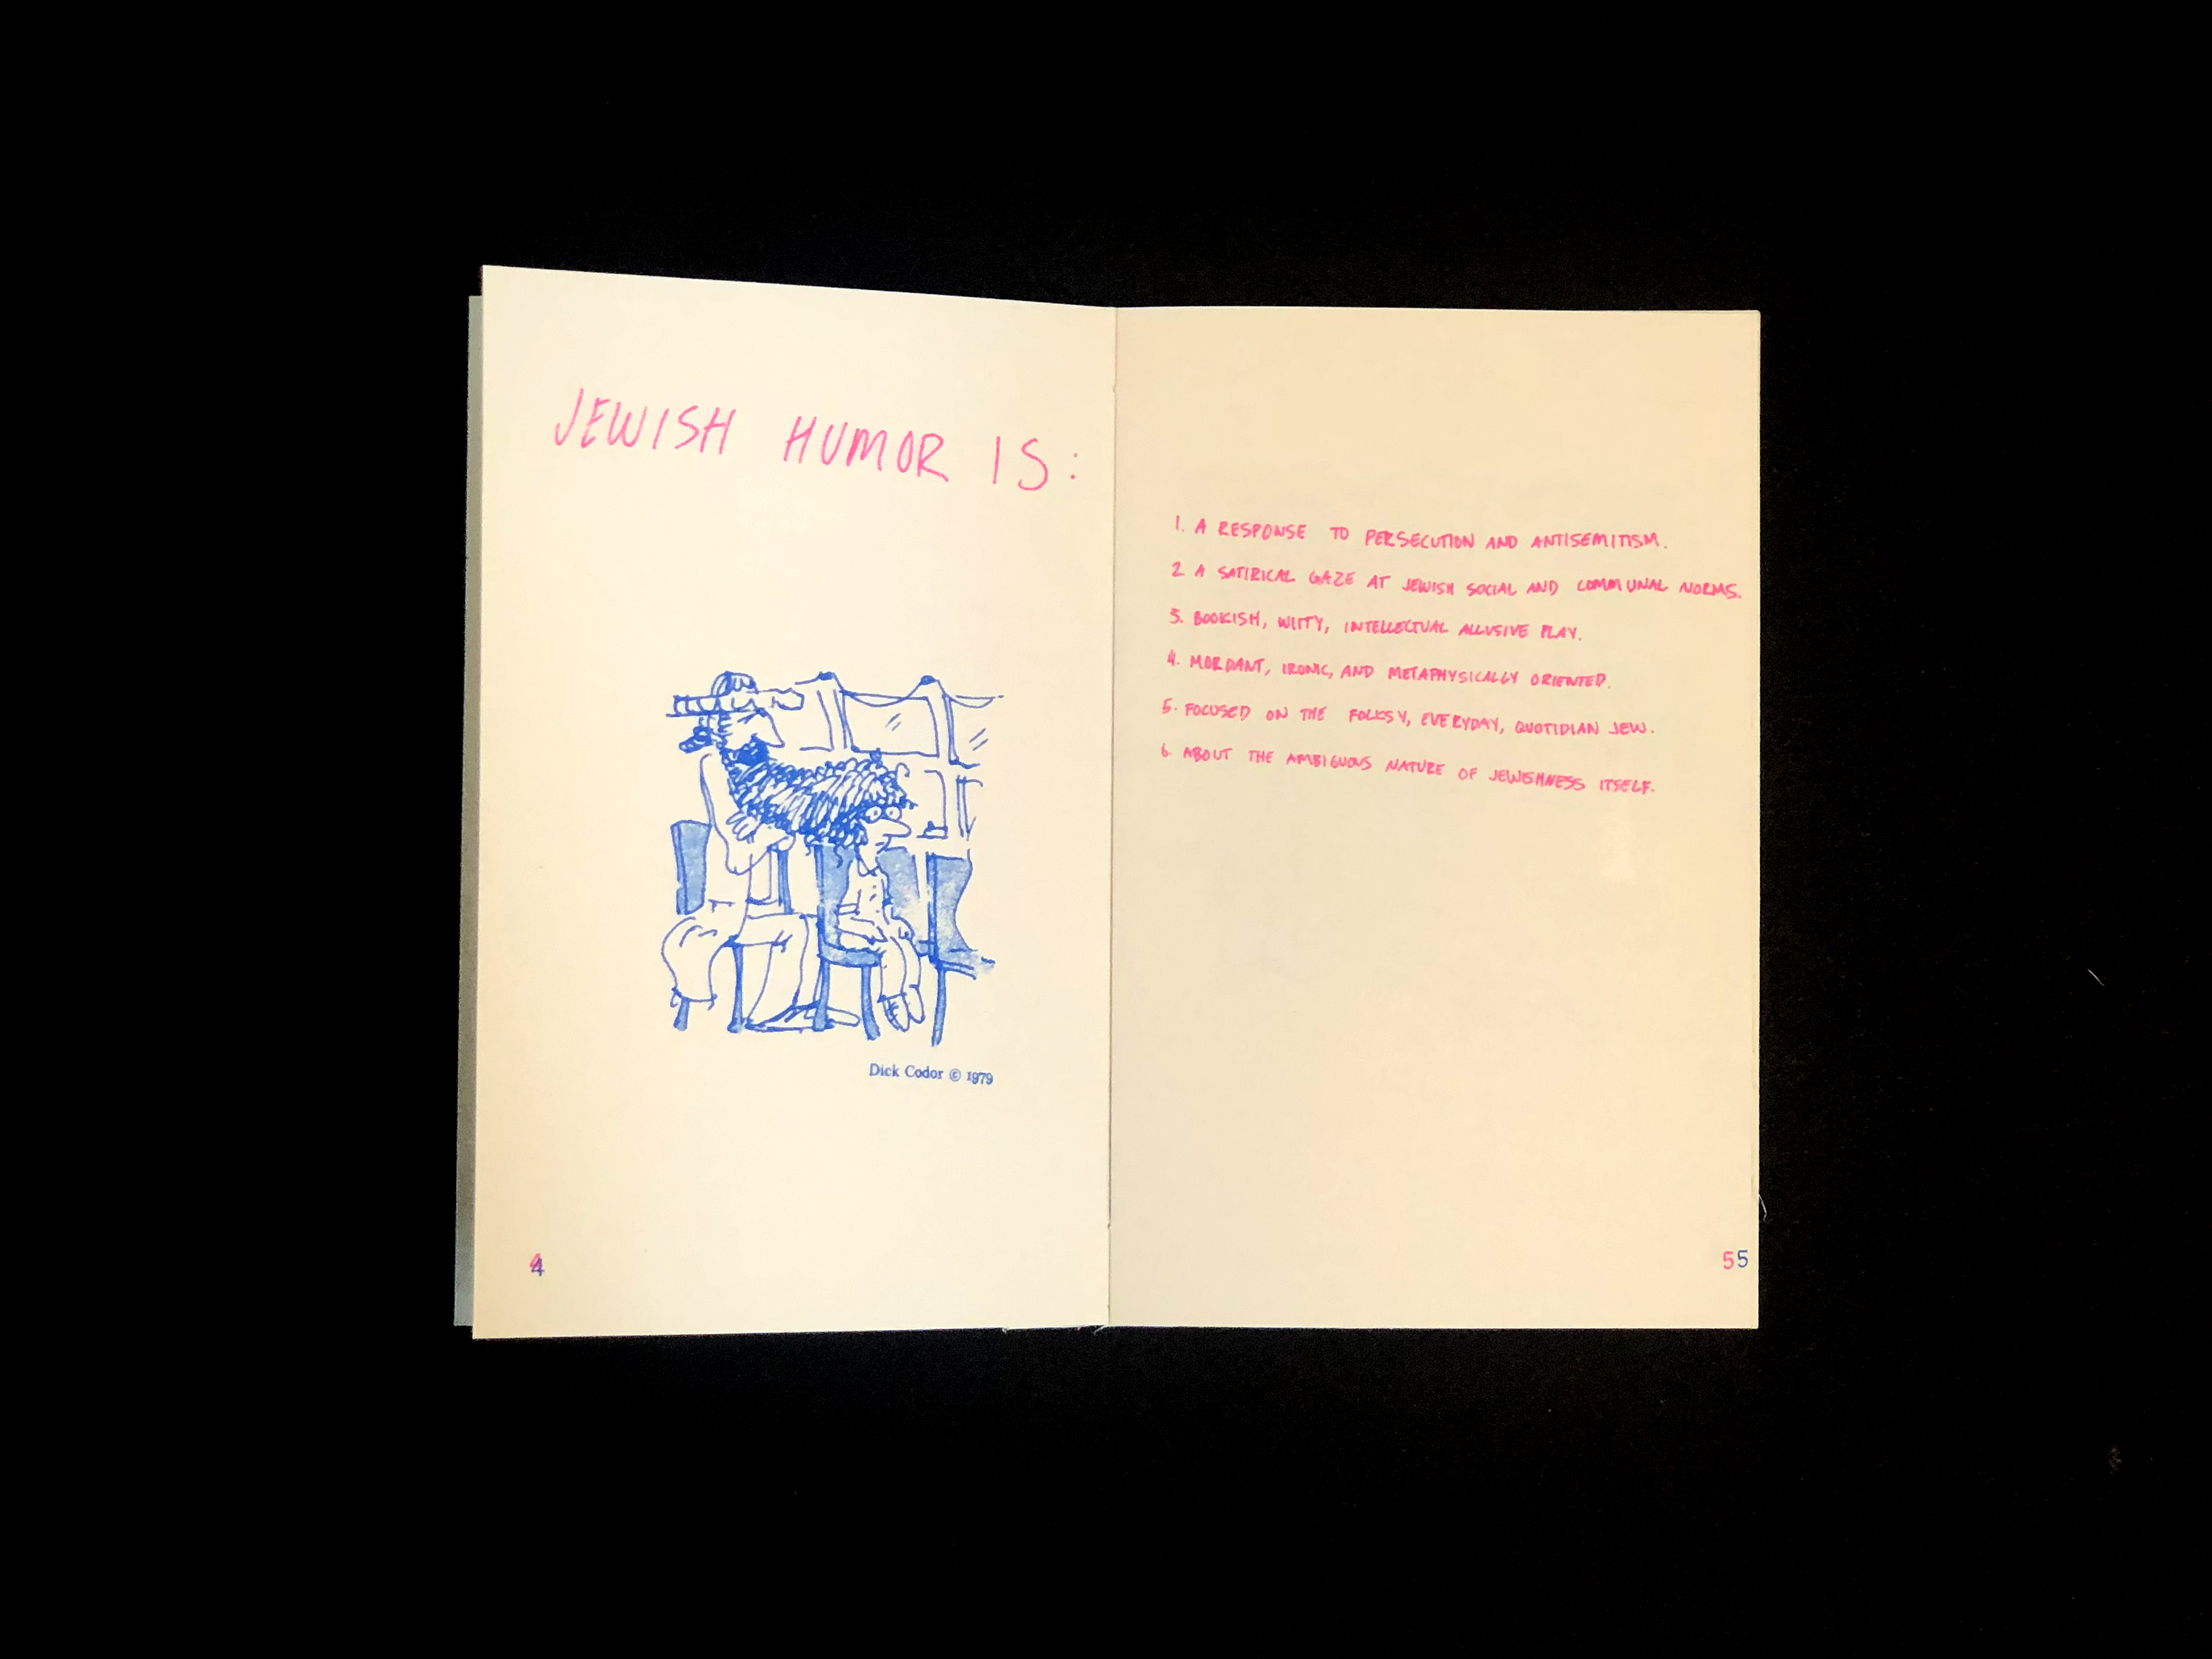 JEWISH HUMOR IS:
Dick Codor © 1979
4
1. A RESPONSE TO PERSECUTION AND ANTISEMITISM.
2 A SATIRICAL GAZE AT JEWISH SOCIAL AND COMMUNAL NORMS.
3. BOOKISH, WITTY, INTELLECTUAL ALLUSIVE PLAY.
4. MORDANT, IRONIC, AND METAPHYSICALLY ORIENTED.
5. FOCUSED ON THE FOLKSY, EVERYDAY, QUOTIDIAN JEW.
6. ABOUT THE AMBIGUOUS NATURE OF JEWISHNESS ITSELF.
55